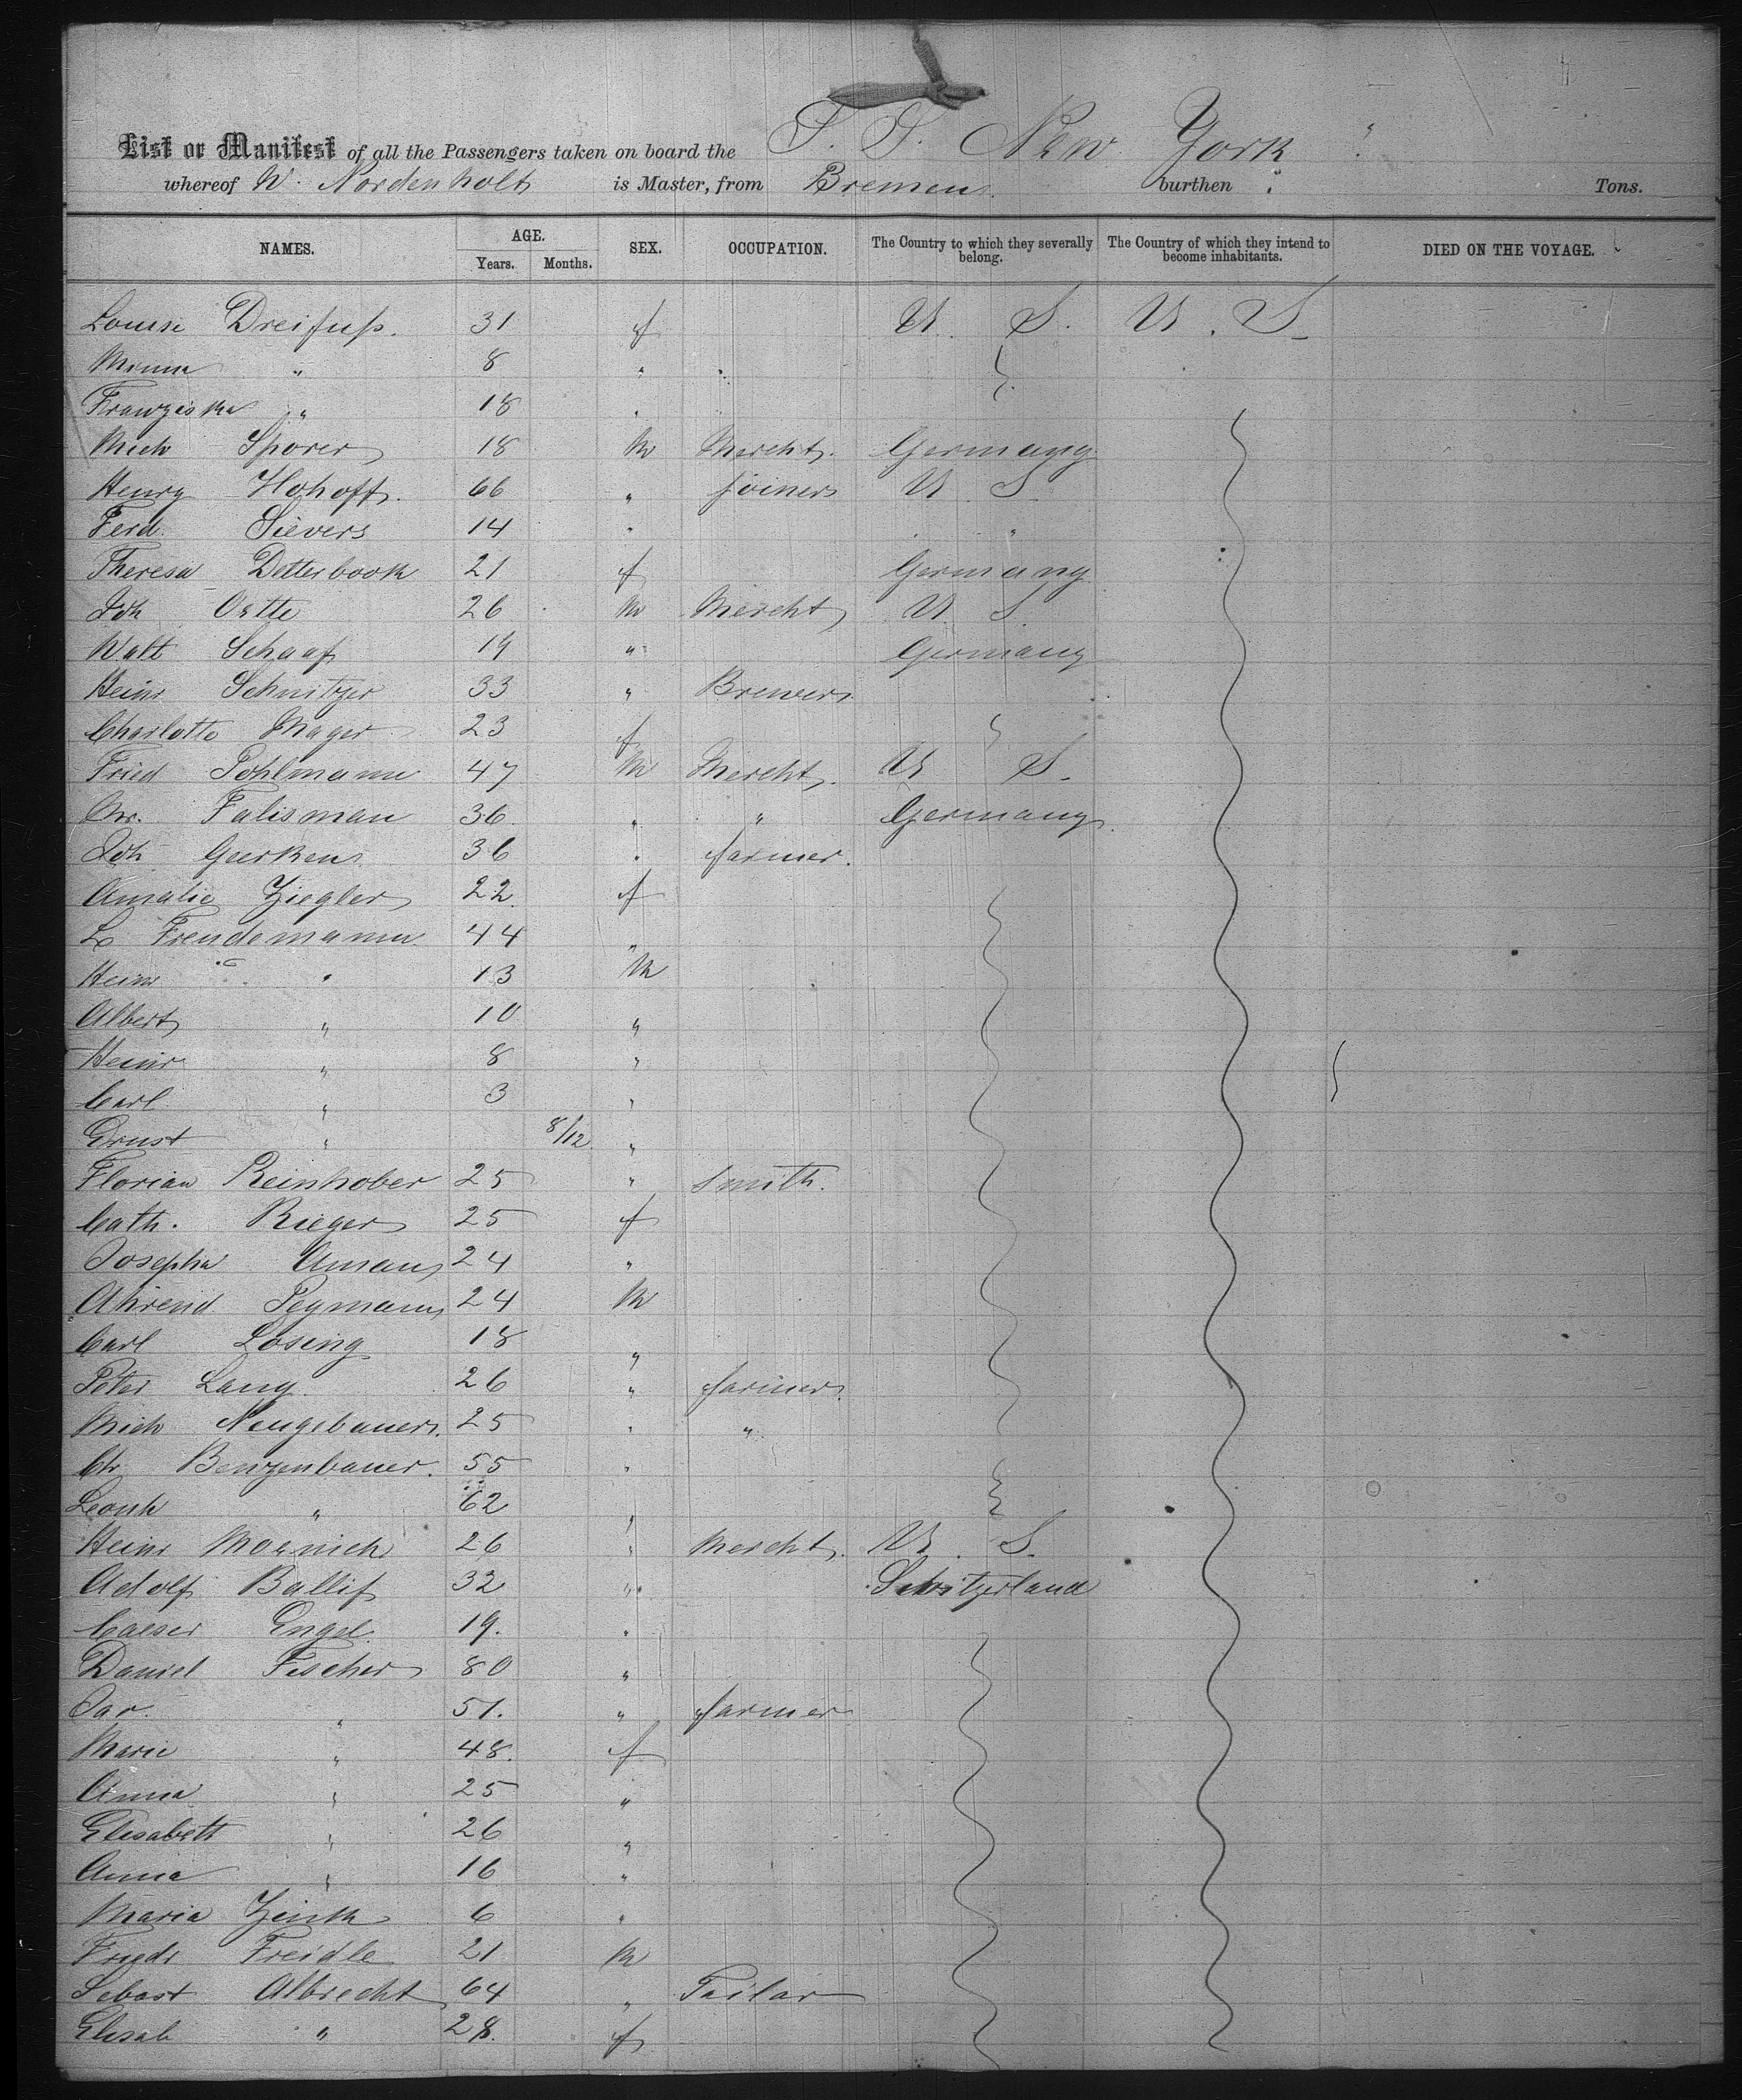 List or Manifest of all the Passengers taken on board the S. S. New York
whereof W. Nordenholt is Master, from Bremen burthen Tons.
NAMES. AGE. SEX. OCCUPATION. The Country to which they severally belong. The Country of which they intend to become inhabitants. DIED ON THE VOYAGE.
Years. Months.
Louise Dreifuss. 31 f U. S. U. S.
Minna " 8 "
Franziska " 18 "
Mich Sporer 18 m Mercht. Germany
Henry Hohoff. 66 " joiner U S
Ferd. Sievers 14 " "
Theresa Detterbook 21 f Germany
Joh Oestte 26 m Mercht U. S.
Walt Schaaf 19 " Germany
Heinr Schnitzer 33 " Brewer
Charlotte Mager 23 f
Fried Pohlmann 47 m Mercht. U S.
Chr. Talisman 36 " " Germany
Joh Geerken 36 " farmer.
Amalie Ziegler 22 f
L. Freudemann 44 "
Heinr " 13 m
Albert " 10 "
Heinr " 8 "
Carl " 3 "
Ernst " 8/12 "
Florian Reinhober 25 " Smith.
Cath. Rieger 25 f
Josepha Aman 24 "
Ahrend Pegmann 24 m
Carl Losing 18 "
Peter Lang 26 " farmer.
Mich Neugebauer. 25 " "
Chr Benzenbauer. 55 "
Leonh " 62 "
Heinr Moenich 26 " Mercht. U. S.
Adolf Ballif 32 " Switzerland
Caeser Engel 19. "
Daniel Fischer 80 "
Jac. " 51. " farmer
Marie " 48. f
Anna " 25 "
Elisabeth " 26 "
Anna " 16 "
Maria Zink 6 "
Friedr Freidle 21 m
Sebast Albrecht 64 " Tailor
Elisab " 28. f